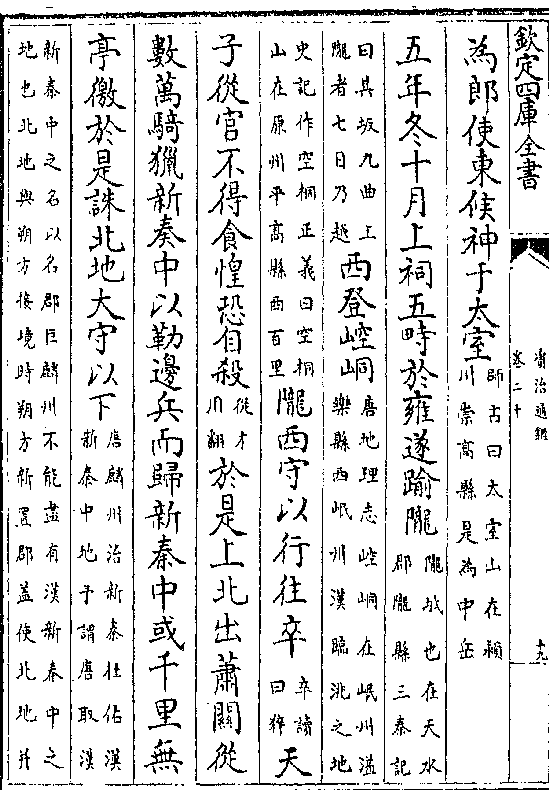 欽定四庫全書
資治通鑑
卷二十
十九
為郎使東候神于太室師古曰太室山在潁川崇高縣是為中岳
五年冬十月上祠五畤於雍遂踰隴隴坻也在天水郡隴縣三秦記
曰其坂九曲上隴者七日乃越西登崆峒唐地理志崆峒在岷州溢樂縣西岷州漢臨洮之地
史記作空桐正義曰空桐山在原州平高縣西百里隴西守以行往卒卒讀曰猝天
子從官不得食惶恐自殺從才用翻於是上北出蕭關從
數萬騎獵新秦中以勒邊兵而歸新秦中或千里無
亭徼於是誅北地大守以下唐麟州治新秦杜佑漢新秦中地予謂唐取漢
新秦中之名以名郡巨麟州不能盡有漢新秦中之地也北地與朔方接境時朔方新置郡蓋使北地并